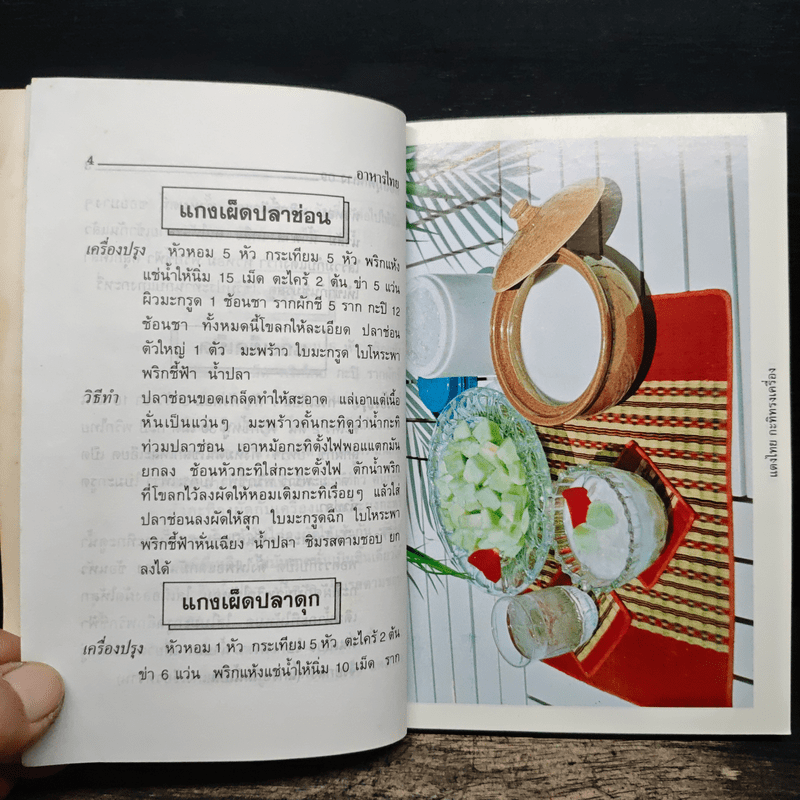 4
อาหารไทย
แกงเผ็ดปลาช่อน
เครื่องปรุง หัวหอม 5 หัว กระเทียม 5 หัว พริกแห้ง
แช่น้ำให้นิ่ม 15 เม็ด ตะไคร้ 2 ต้น ข่า 5 แว่น
ผิวมะกรูด 1 ช้อนชา รากผักชี 5 ราก กะปิ 12
ช้อนชา ทั้งหมดนี้โขลกให้ละเอียด ปลาช่อน
ตัวใหญ่ 1 ตัว มะพร้าว ใบมะกรูด ใบโหระพา
พริกชี้ฟ้า น้ำปลา
วิธีทำ ปลาช่อนขอดเกล็ดทำให้สะอาด แล่เอาแต่เนื้อ
หั่นเป็นแว่นๆ มะพร้าวคั้นกะทิดูว่าน้ำกะทิ
ท่วมปลาช่อน เอาหม้อกะทิตั้งไฟพอแตกมัน
ยกลง ช้อนหัวกะทิใส่กะทะตั้งไฟ ตักน้ำพริก
ที่โขลกไว้ลงผัดให้หอมเติมกะทิเรื่อยๆ แล้วใส่
ปลาช่อนลงผัดให้สุก ใบมะกรูดฉีก ใบโหระพา
พริกชี้ฟ้าหั่นเฉียง น้ำปลา ชิมรสตามชอบ ยก
ลงได้
แกงเผ็ดปลาดุก
เครื่องปรุง หัวหอม 1 หัว กระเทียม 5 หัว ตะไคร้ 2 ต้น
ข่า 6 แว่น พริกแห้งแช่น้ำให้นิ่ม 10 เม็ด ราก
แตงไทย กะทิทรงเครื่อง